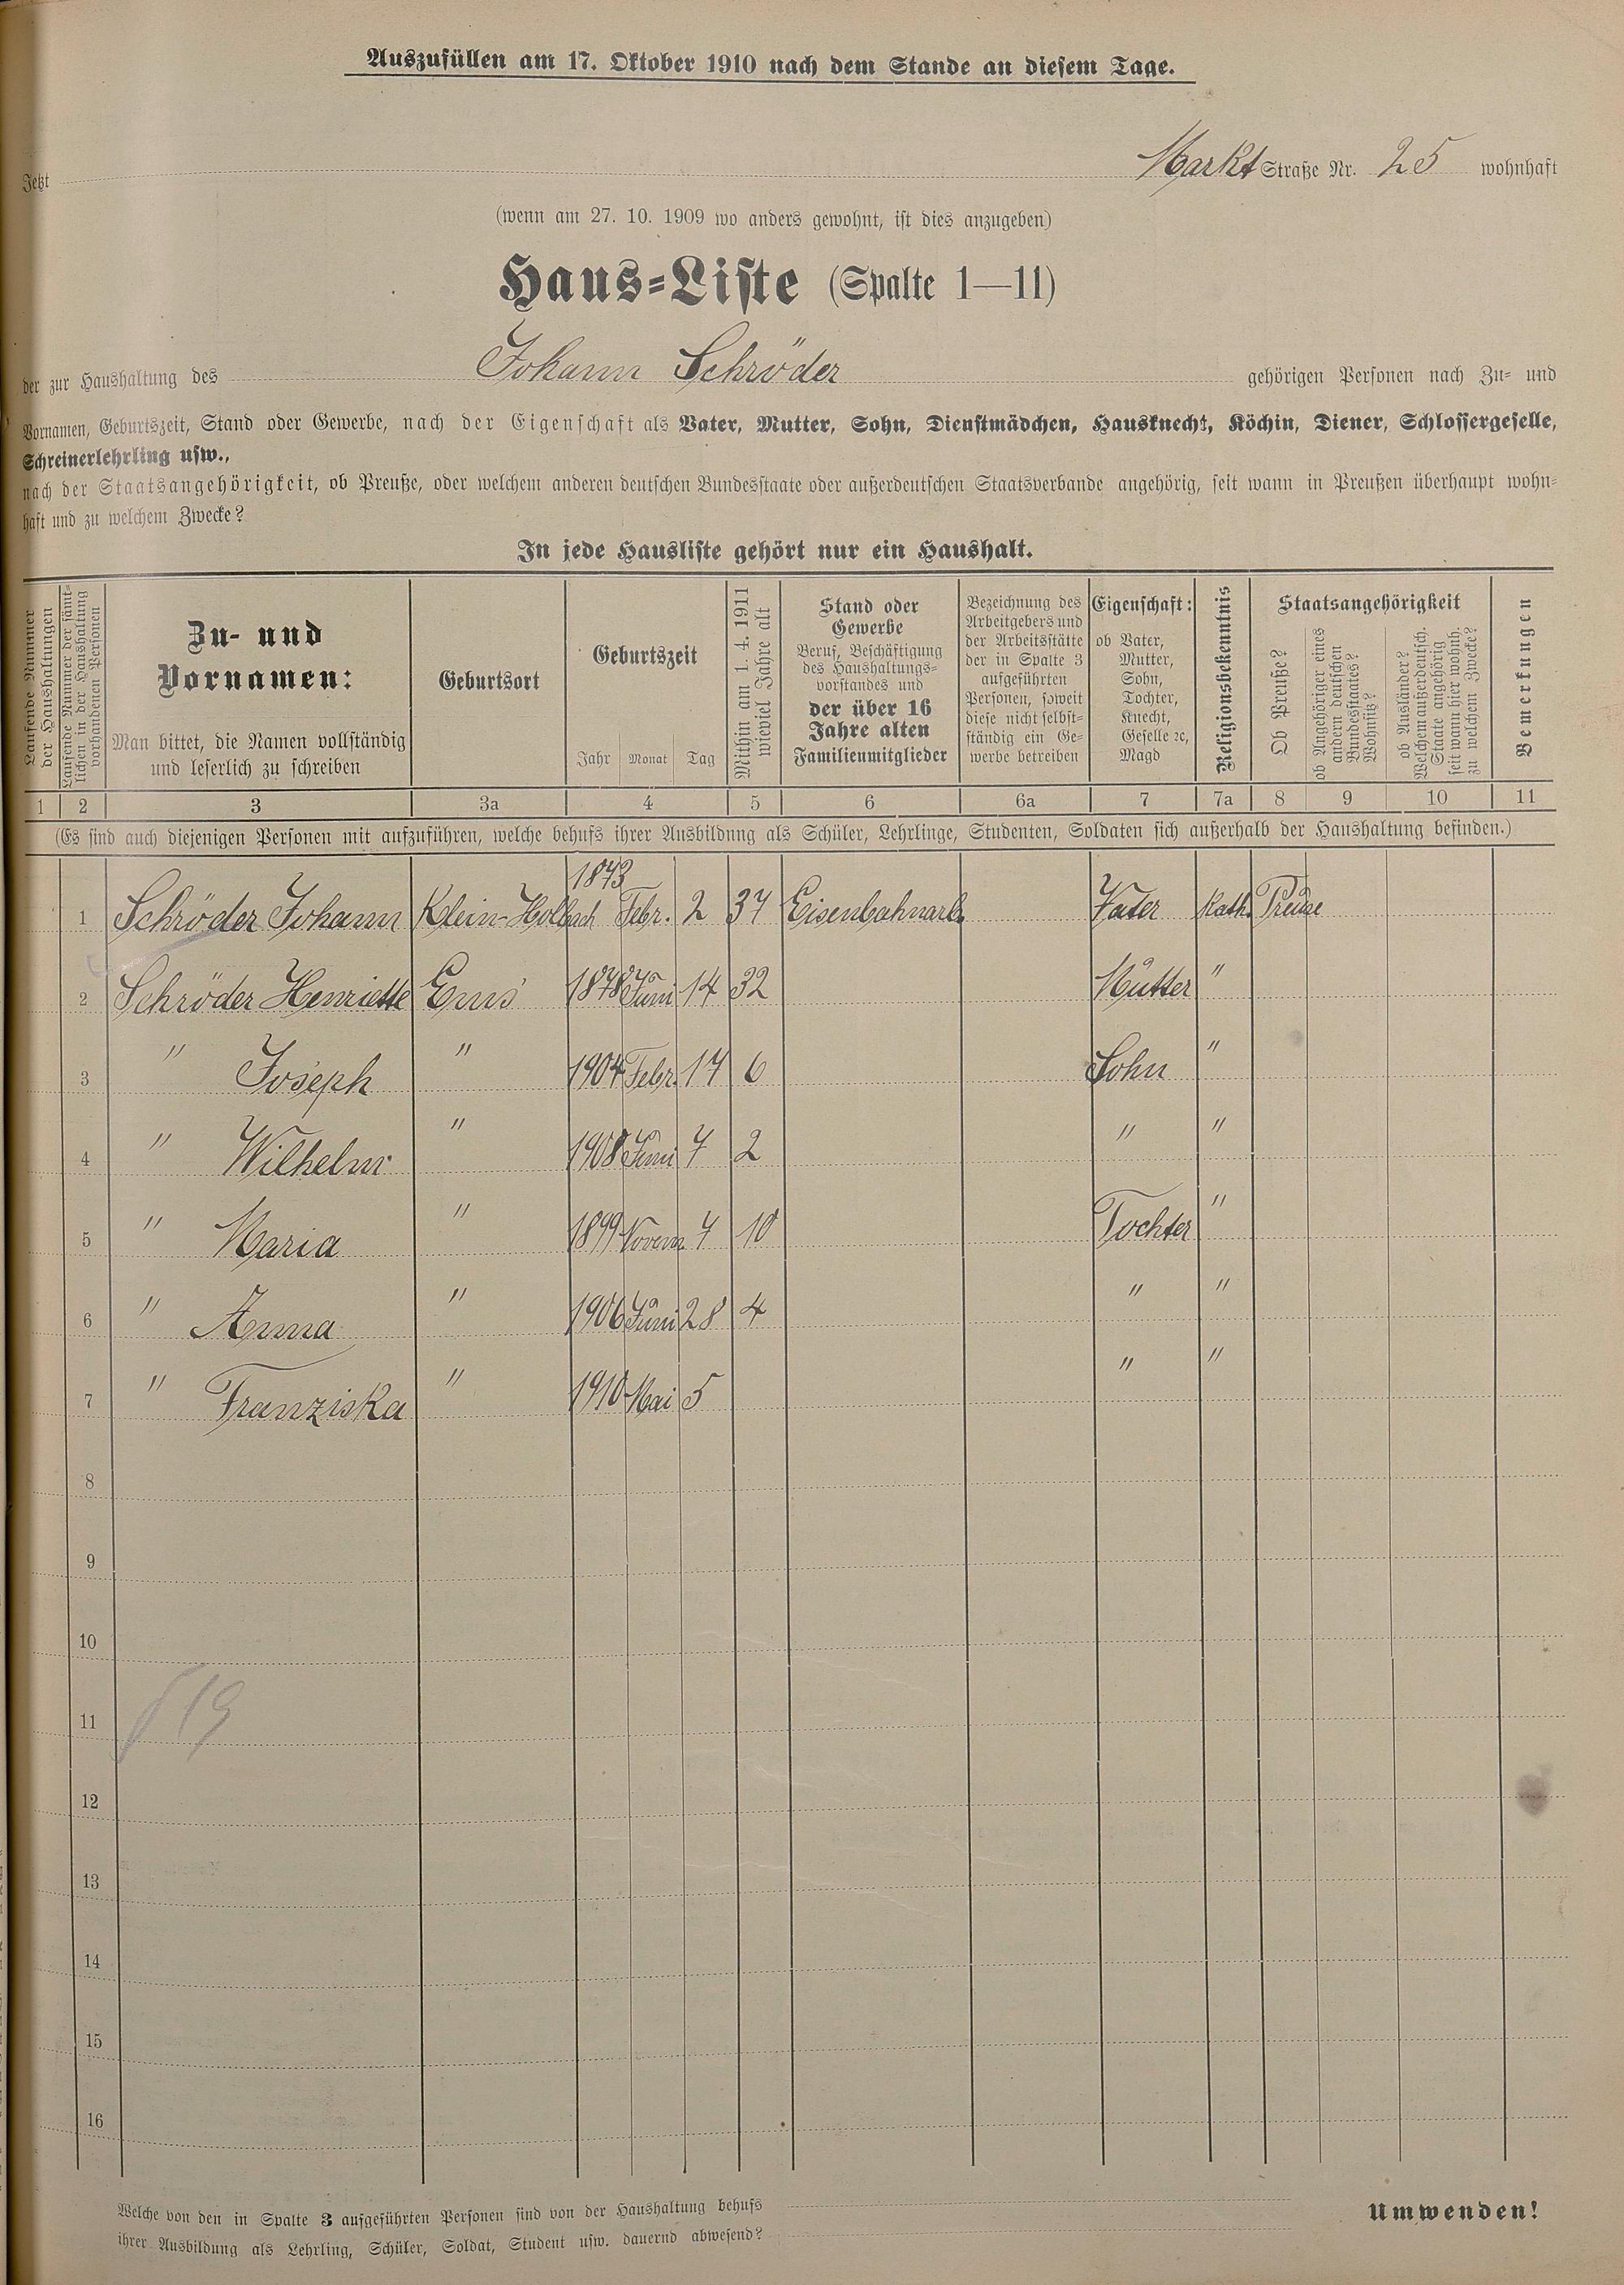 Auszufüllen am 17. Oktober 1910 nach dem Stande an diesem Tage.
Jetzt Markt Straße Nr. 25 wohnhaft
(wenn am 27. 10. 1909 wo anders gewohnt, ist dies anzugeben)
Haus-Liste (Spalte 1—11)
der zur Haushaltung des Johann Schröder gehörigen Personen nach Zu- und
Vornamen, Geburtszeit, Stand oder Gewerbe, nach der Eigenschaft als Vater, Mutter, Sohn, Dienstmädchen, Hausknecht, Köchin, Diener, Schlossergeselle,
Schreinerlehrling usw.,
nach der Staatsangehörigkeit, ob Preuße, oder welchem anderen deutschen Bundesstaate oder außerdeutschen Staatsverbande angehörig, seit wann in Preußen überhaupt wohn-
haft und zu welchem Zwecke?
In jede Hausliste gehört nur ein Haushalt.
Laufende Nummer
der Haushaltungen
Laufende Nummer der sämt-
lichen in der Haushaltung
vorhandenen Personen
Zu- und
Vornamen:
Man bittet, die Namen vollständig
und leserlich zu schreiben
Geburtsort
Geburtszeit
Jahr Monat Tag
Mithin am 1. 4. 1911
wieviel Jahre alt
Stand oder
Gewerbe
Beruf, Beschäftigung
des Haushaltungs-
vorstandes und
der über 16
Jahre alten
Familienmitglieder
Bezeichnung des
Arbeitgebers und
der Arbeitsstätte
der in Spalte 3
aufgeführten
Personen, soweit
diese nicht selbst-
ständig ein Ge-
werbe betreiben
Eigenschaft:
ob Vater,
Mutter,
Sohn,
Tochter,
Knecht,
Geselle ꝛc,
Magd
Religionsbekenntnis
Staatsangehörigkeit
Ob Preuße?
ob Angehöriger eines
andern deutschen
Bundesstaates?
Wohnsitz?
ob Ausländer?
Welchem außerdeutsch.
Staate angehörig
seit wann hier wohnh.
zu welchen Zwecke?
Bemerkungen
1 2 3 3a 4 5 6 6a 7 7a 8 9 10 11
(Es sind auch diejenigen Personen mit aufzuführen, welche behufs ihrer Ausbildung als Schüler, Lehrlinge, Studenten, Soldaten sich außerhalb der Haushaltung befinden.)
1 Schröder Johann Klein-Holbach 1873 Febr. 2 37 Eisenbahnarb. Vater Kath. Preuse
2 Schröder Henriette Ems 1878 Juni 14 32 Mutter "
3 " Joseph " 1904 Febr. 17 6 Sohn "
4 " Wilhelm " 1908 Juni 7 2 " "
5 " Maria " 1899 Novem. 7 10 Tochter "
6 " Anna " 1906 Juni 28 4 " "
7 " Franziska " 1910 Mai 5 " "
8
9
10
11
12
13
14
15
16
Welche von den in Spalte 3 aufgeführten Personen sind von der Haushaltung behufs
ihrer Ausbildung als Lehrling, Schüler, Soldat, Student usw. dauernd abwesend?
Umwenden!